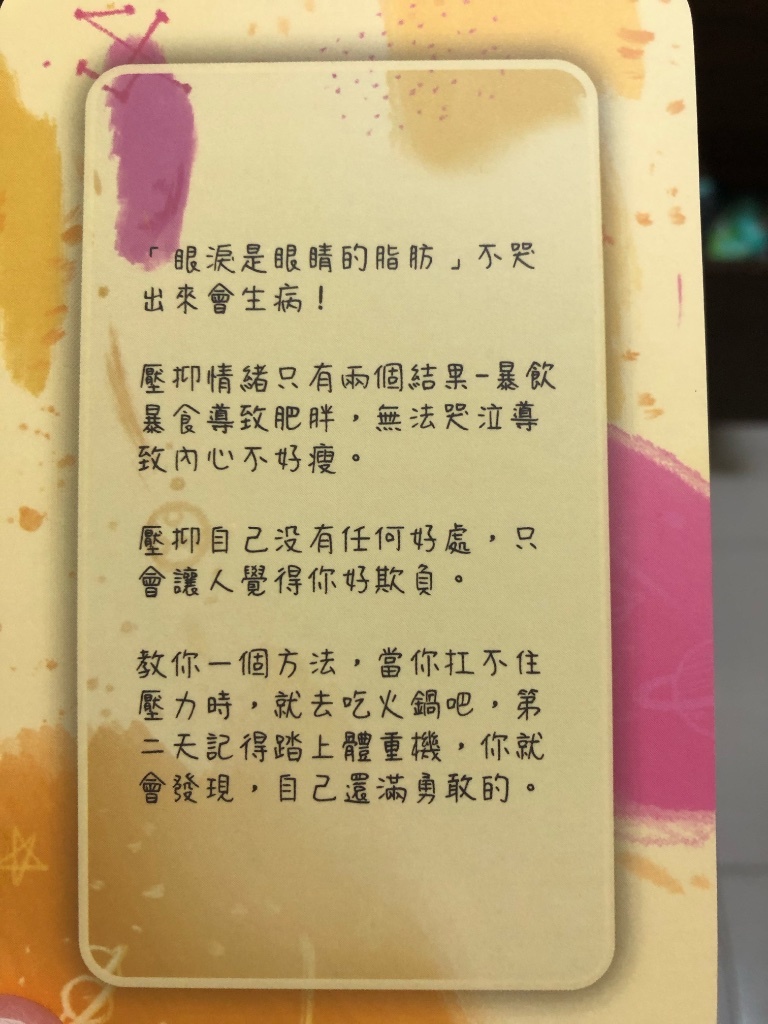 「眼淚是眼睛的脂肪」不哭
出來會生病！
壓抑情緒只有兩個結果-暴飲
暴食導致肥胖，無法哭泣導
致內心不好瘦。
壓抑自己沒有任何好處，只
會讓人覺得你好欺負。
教你一個方法，當你扛不住
壓力時，就去吃火鍋吧，第
二天記得踏上體重機，你就
會發現，自己還滿勇敢的。